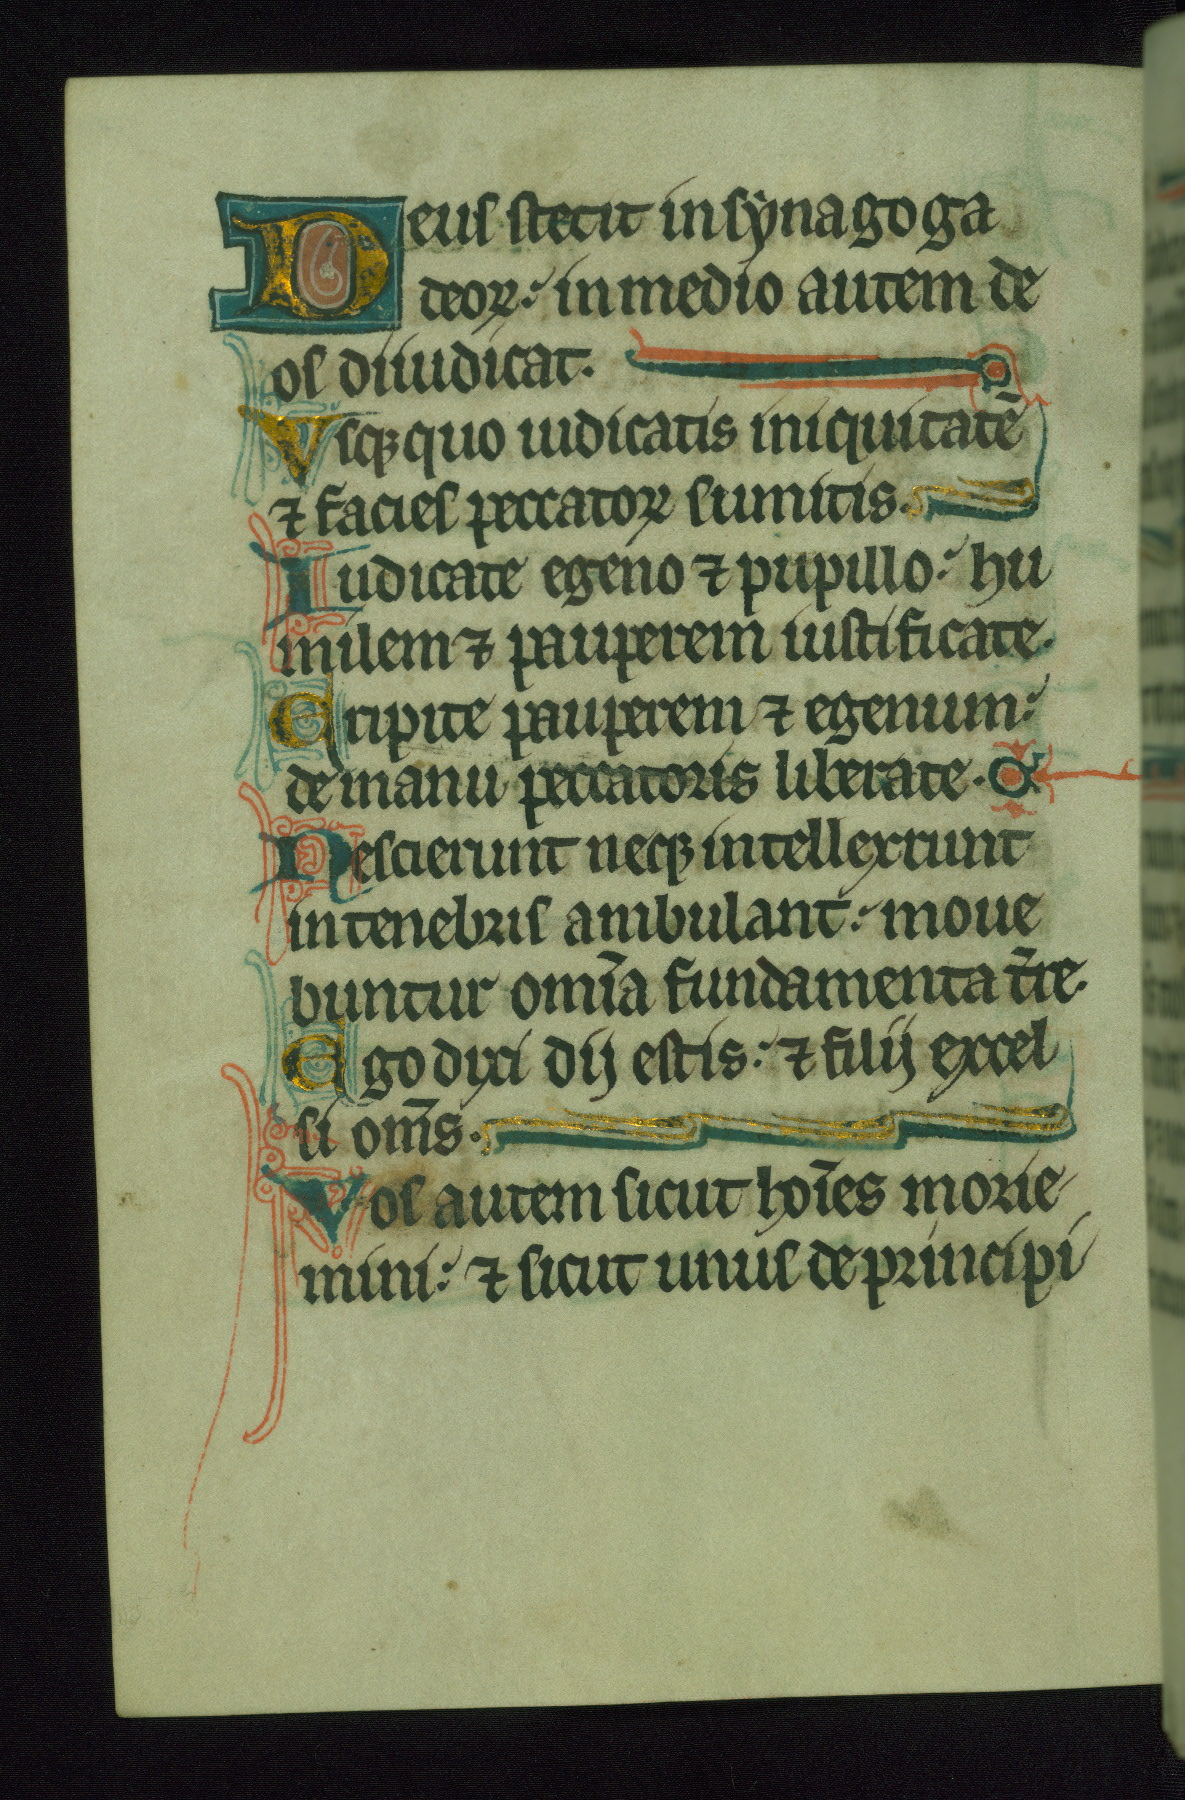 Deus stetit in synagoga
deoꝝ: in medio autem de
os diiudicat.
Vsqꝫquo iudicatis iniquitatē
⁊ facies peccatoꝝ sumitis.
Iudicate egeno ⁊ pupillo: hu
milem ⁊ pauperem iustificate.
Eripite pauperem ⁊ egenum:
de manu peccatoris liberate.
Nescierunt neqꝫ intellexrunt
in tenebris ambulant: moue
buntur om̄ia fundamenta t̄re.
Ego dixi dij estis: ⁊ filij excel
si om̄s.
Vos autem sicut hoīes morie
mini: ⁊ sicut unus de principi